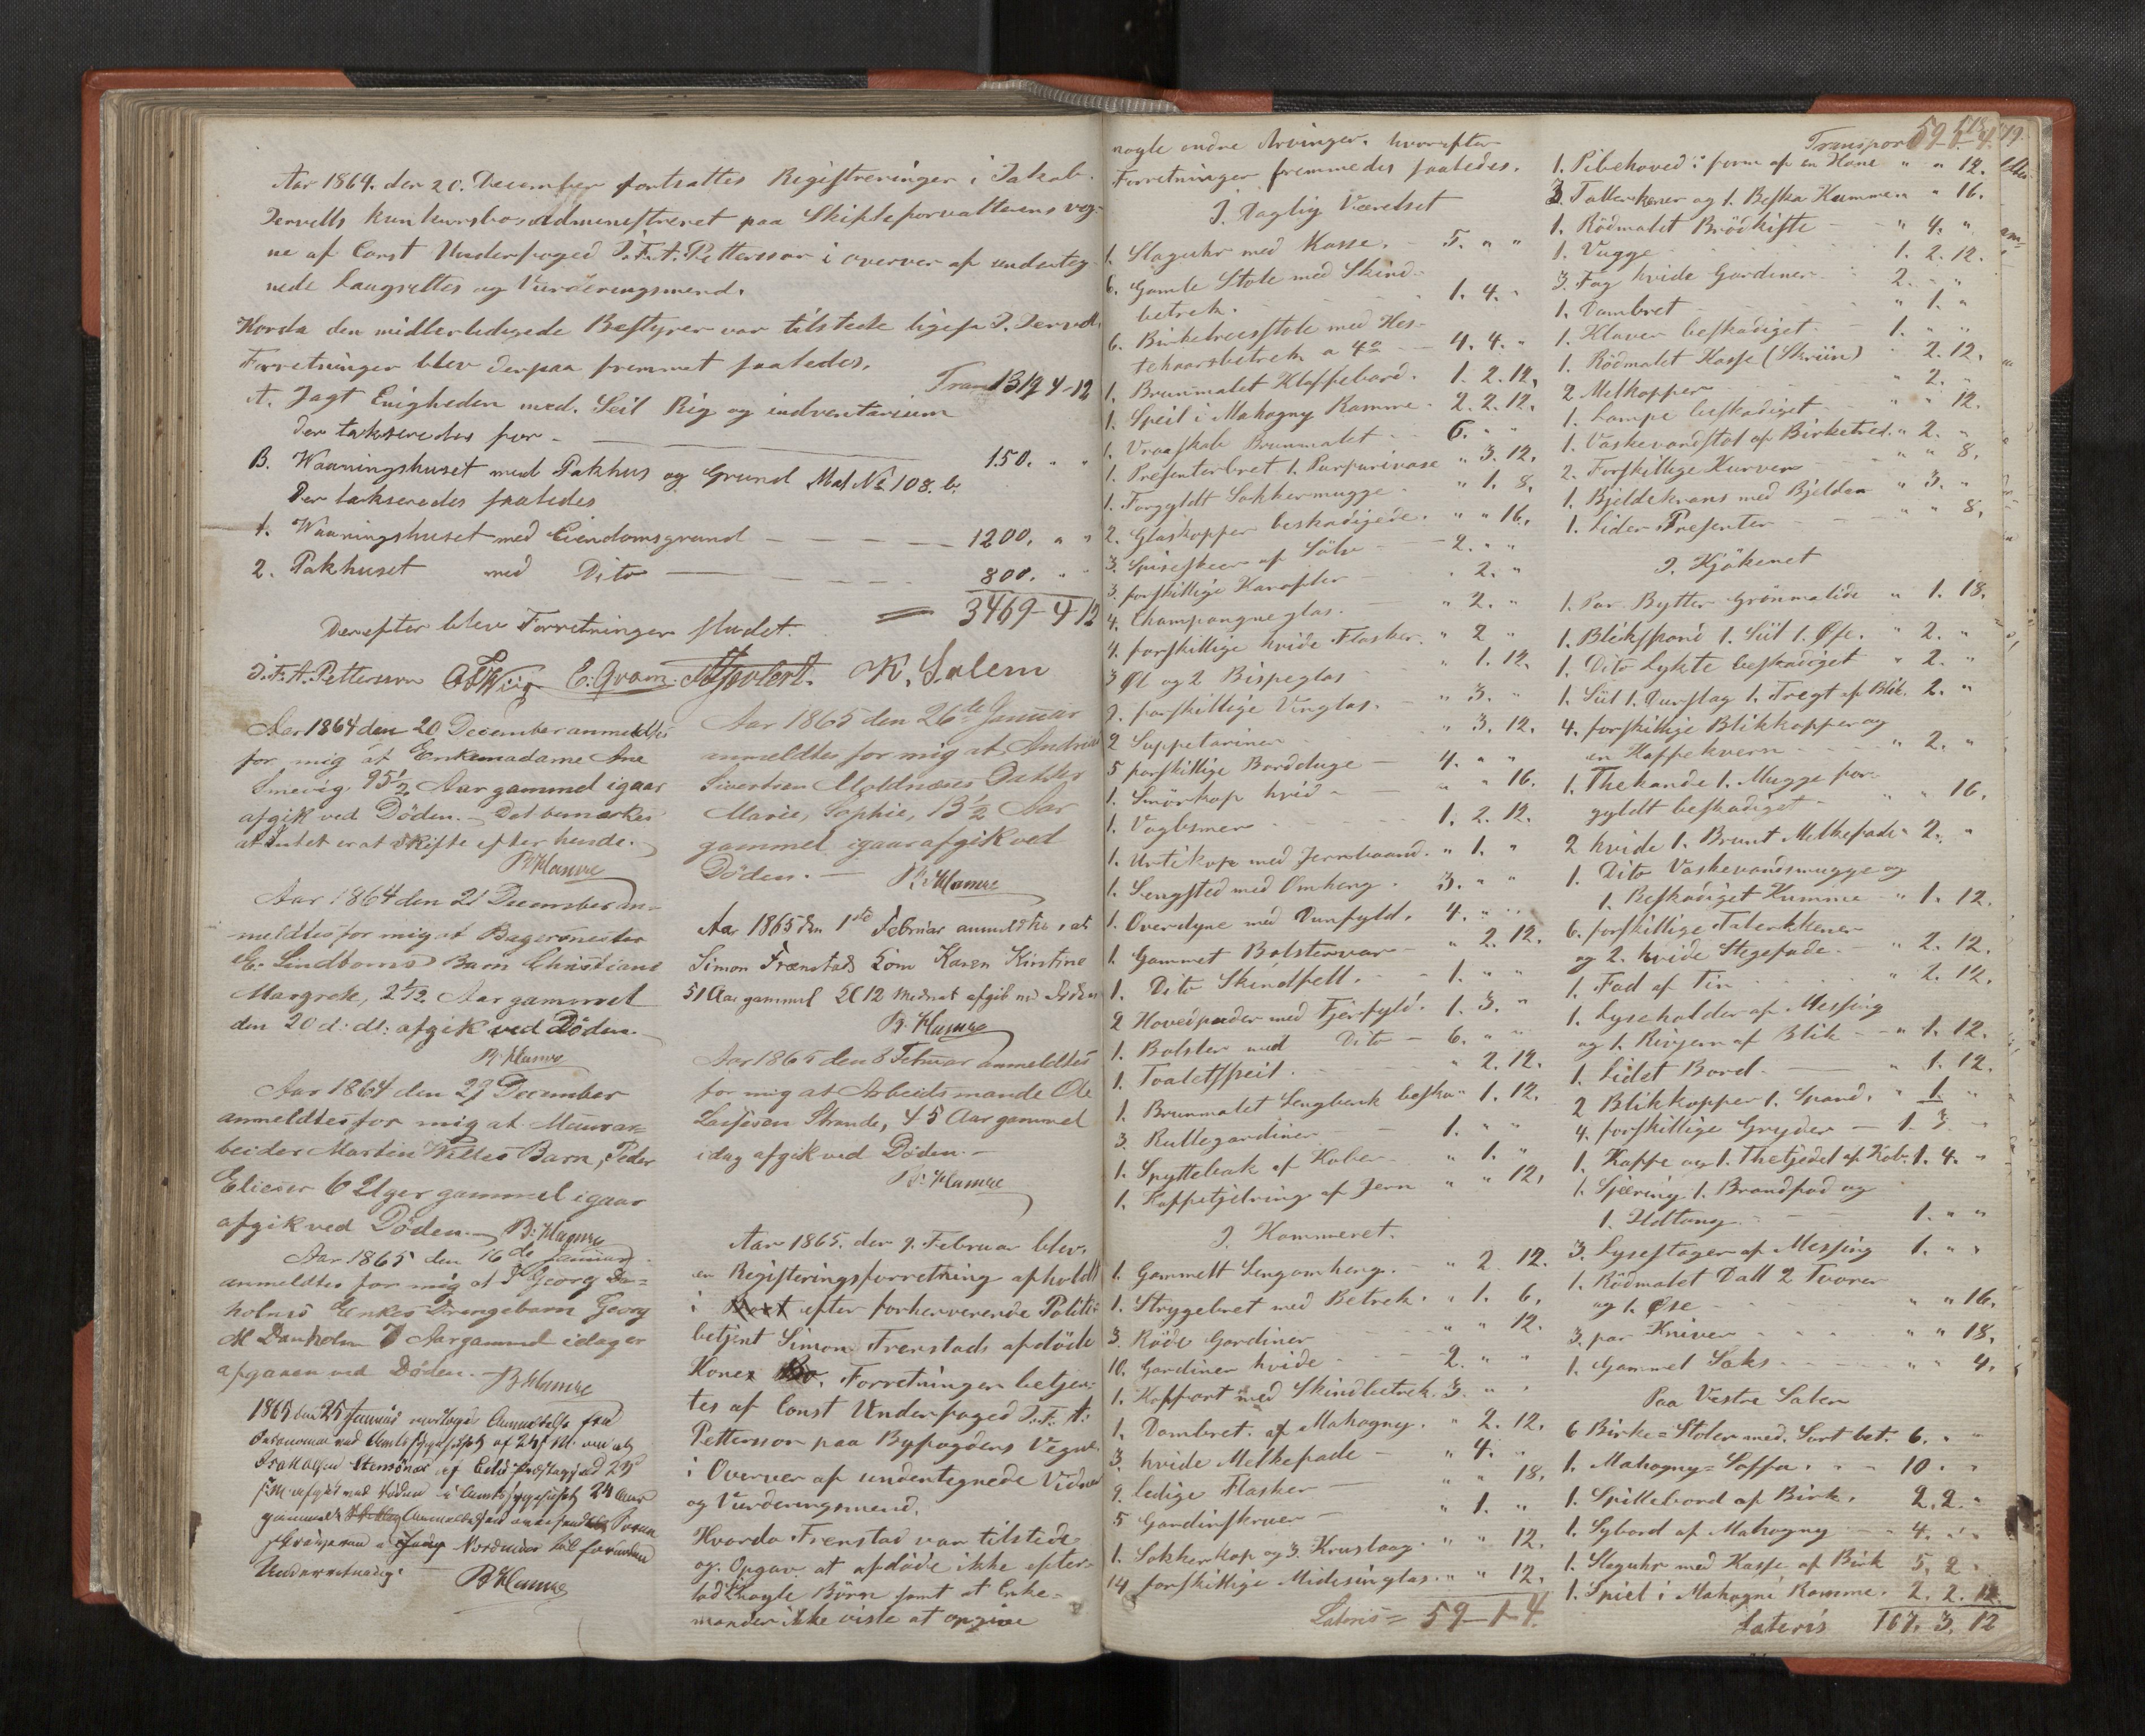 Aar 1864. den 20. December fortsattes Registreringen i Jakob
Dervells konkursbo administreret paa Skifteforvalterens veg-
ne af Const Underfoged J. F. A. Pettersson i overver af underteg
nede Laugrettes og Vurderingsmend.
Hvorda den midlertidigede Bestyrer var tilstede ligesa J. Dervell
Forretningen blev derpaa fremmet saaledes.
Trans 1319 4-12
A. Jagt Enigheden med. Seil Rig og indventarium
der takseredes for - 150. " "
B. Vaaningshuset med Pakhus og Grund Mat No 108. b.
Der takseredes saaledes
1. Vaaningshuset med Eiendomsgrund - 1200. " "
2. Pakhuset med Dito - 800. " "
= 3469-4-12
Derefter blev Forretningen sluttet.
J. F. A. Pettersson E: Gram. K. Salem
Aar 1864 den 20 December anmeldtes
for mig at Enkemadame Ane
Smevig 95½ Aar gammel igaar
afgik ved Döden. - Det bemærkes
at Intet er at skifte efter hende.
B. Hamre
Aar 1864 den 21 December an-
meldtes for mig at Bagermester
E. Lindboms Barn Christiane
Margrete, 2 1/12 Aar gammel
den 20 d: dt: afgik ved Döden.
B. Hamre
Aar 1864 den 27 December
anmeldtes for mig at Murar-
beider Martin Nilles Barn, Peder
Elieser 6 Uger gammel igaar
afgik ved Döden. - B: Hamre
Aar 1865 den 16de Januar
anmeldtes for mig at Georg Dan-
holms Enkes Drengebarn Georg
M Danholm 7 Aar gammel idag er
afgaaen ved Döden. - B. Hamre
1865 den 25 Januar modtoges Anmeldelse fra
Oekonomen ved Amtssygehuset af 24 s. M. om at
Stensönes af Eidö Præstegjeld 23
s: M afgik ved Döden i Amtssygehuset 24 Aar
gammel
Nordmör til
Underretning.
B Hamre
Aar 1865 den 26de Januar
anmeldtes for mig at Andrias
Sivertsen Moldnæses Datter
Marie, Sophie, 13½ Aar
gammel igaar afgik ved
Döden. - B: Hamre
Aar 1865 den 1ste Februar anmeldtes, at
Simon Frænstads Kone Karen Kirstine
51 Aar gammel Kl 12 Midnat afgik ved Döden
B. Hamre
Aar 1865 den 8 Februar anmeldtes
for mig at Arbeidsmand Ole
Larsson Strande, 45 Aar gammel
idag afgik ved Döden. -
B: Hamre
Aar 1865. den 9. Februar blev.
en Registeringsforretning afholdt
i Boet efter forhenverende Politi-
betjent Simon Frenstads afdöde
Kones Bo. Forretningen betjen-
tes af Const Underfoged J. F. A:
Pettersson paa Byfogdens Vegne.
i Overver af undertegnede Vidner
og Vurderingsmend.
Hvorda Frenstad var tilstede
og. Opgav at afdöde ikke efter-
lod sig nogle Börn samt at Enke-
manden ikke viste at opgive
nogle andre Arvinger. hvorefter
Forretningen fremmedes saaledes.
I. Daglig Værelset
1. Slaguhr med Kasse. - 5. " "
6. Gamle Stole med Skind-
betrek. 1. 4. "
6. Birketreesstole med Hes-
tehaarsbetrek a 4 - 4. 4. "
1. Brunmalet Klaffebord. 1. 2. 12.
1. Speil i Mahogny Ramme. 2. 2. 12.
1. Vraaskab Brunmalet - 6. " "
1. Presenterbret 1. Purpurivase " 3. 12.
1. Forgyldt Sokkermugge. " 1. 8.
2. Glaskopper beskadigede. " " 16.
3. Spiseskeer af Sölv - 2. " "
3. forskillige Karafler - " 2. "
4. Champangneglas. " 2. "
4. forskillige hvide Flasker. " 2 "
3 Øl og 2 Bispeglas - " 1. 12.
9. forskillige Vinglas. - " 3. "
2 Suppetariner " 3. 12.
5 forskillige Bordduge - 4. " "
1. Smörkop hvid - " " 16.
1. Voglesmen 1. 2. 12.
1. Urtekop med Jernbaand. " 1. "
1. Sengsted med Omheng. 3. " "
1. Overdyne med Dunfyld. 4. " "
1. Gammet Bolstervar - " 2. 12.
1. Dito Skindfell. - 1. " "
2 Hovedpuder med Fjerfyld. 1. 3. "
1. Bolster med Dito - 6. " "
1. Toaletspeil. " 2. 12.
1. Brunmalet Sengbenk beska " 1. 12.
3. Rullegardiner - 1. " "
1. Spyttebak af Kober " 1. "
1. Kaffetjelring af Jern " " 12.
I. Kammeret.
1. Gammelt Sengomheng. - " 2 12.
1. Strygebret med Betrek. " 1. 6.
3. Röde Gardiner " " 12.
10. Gardiner hvide - 2. " "
1. Koffort med Skindbetrek. 3. " "
1. Dambret. af Mahogny. " 2. 12.
3. hvide Melkefade - " 4. "
9. ledige Flasker - " " 18.
5 Gardinskruer - " 1. "
1. Sokkerkop og 3. Kruslaag. " " 12.
14 forskillige Midesinglas. " " 12.
Lateris = 59-1-4.
Transport 59-1-4.
1. Pibehoved i form af en Hane " " 12.
3. Tallerkener og 1. Beska Kumme " " 16.
1. Rödmalet Brödkiste - " 4. "
1. Vugge 1. 2. 12.
3. Fag hvide Gardiner. 2. " "
1. Dambret - " 1. "
1. Klaver beskadiget. - 1. " "
1. Rödmalet Kasse (Skriin) " 2. 12.
2 Melkopper " 2. "
1. Lampe beskadiget - " " 12.
1. Vaskevandstol af Birketræ. " 2. "
2. Forskillige Kurver - " " 8.
1. Bjeldekrans med Bjelder " 3. "
1. Liden Presenter - " " 8.
I. Kjökenet
1. Par Bytter Grönmalide " 1. 18.
1. Blikspand 1. Siil 1. Øse. " 2. "
1. Dito Lykte beskadiget " 2. "
1. Siil 1. Durslag 1. Tregt af Blik. 2. "
4. forskillige Blikkopper og
en Kaffekvern - " 2. "
1. Thekande 1. Mugge for-
gyldt beskadiget - " " 16.
2 hvide 1. Brunt Melkefade " 2. "
1. Dito Vaskevandsmugge og
1. Beskadiget Kumme - " 1. 12.
6. forskillige Talerkkener
og 2. hvide Stegefade. - " 2. 12.
1. Fad af Tin " 2. 12.
1. Lyseholder af Messing
og 1. Rivjern af Blik - " 1. 12.
1. Lidet Bord. - " 1. 12.
2 Blikkopper 1. Spand. " 1. "
4. forskillige Gryder - 1. 3. "
1. Kaffe og 1. Thetjedel af Kob. 1. 4. "
1. Sjæring 1. Brandfad og
1. Ildtang. 1. " "
3. Lysestager af Messing 1. " "
1. Rödmalet Dall 2 Tvorer
og 1. Øse " " 16.
3. par Kniver " " 18.
1. Gammel Saks " " 4.
Paa Vestre Salen
6 Birke-Stoler med. Sort bet. 6. " "
1. Mahogny-Soffa. 10. " "
1. Spillebord af Birk. 2. 2. "
1. Sybord af Mahogny - 4. " "
1. Slaguhr med Kasse af Birk 5. 2 "
1. Spiel i Mahogni Ramme. 2. 2. 12
Lateris 167. 3. 12